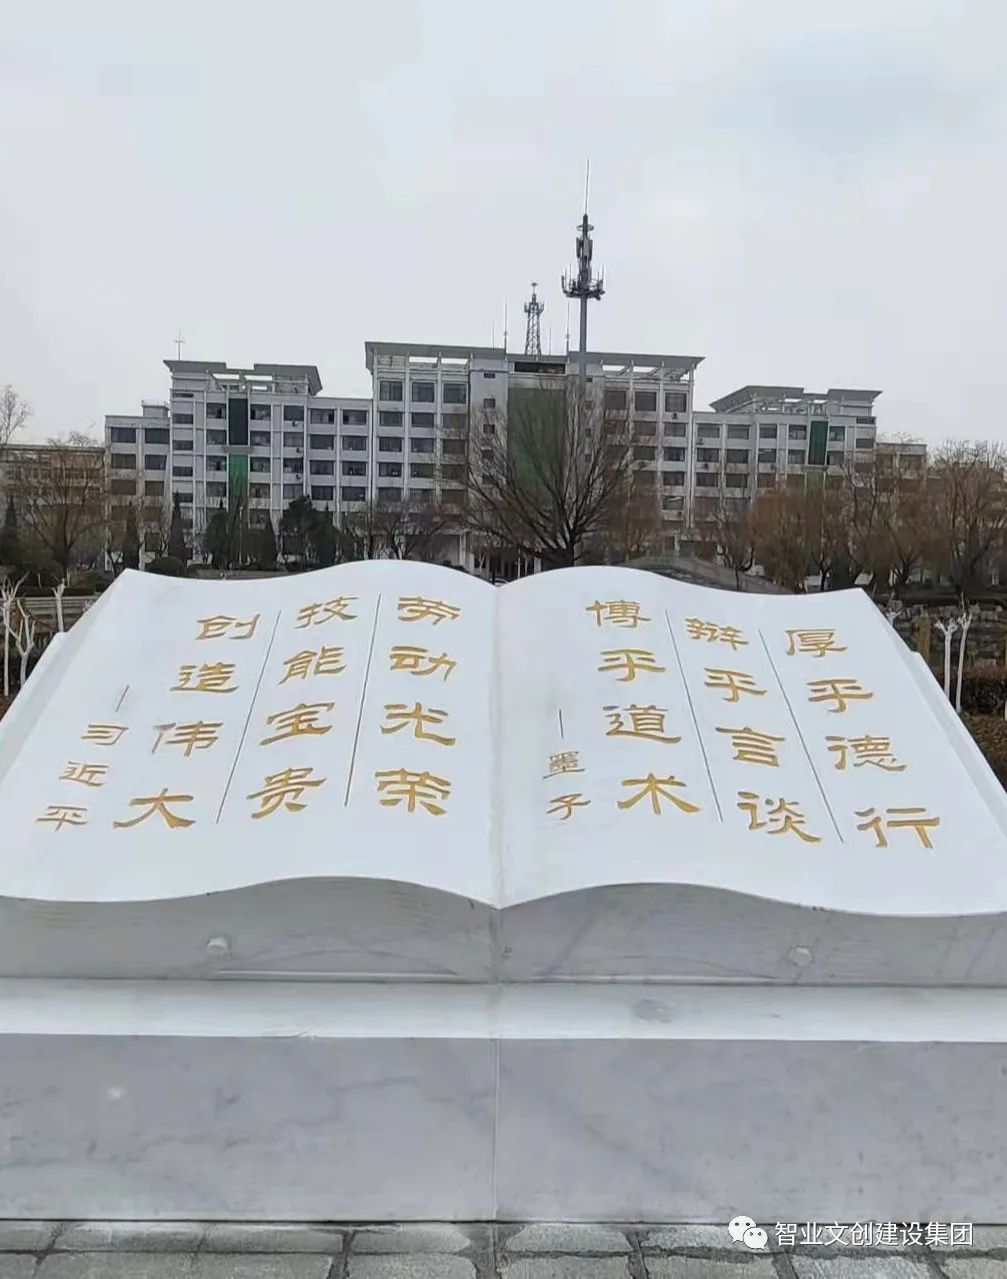 厚乎德行
辩乎言谈
博乎道术
—墨子
劳动光荣
技能宝贵
创造伟大
—习近平
智业文创建设集团